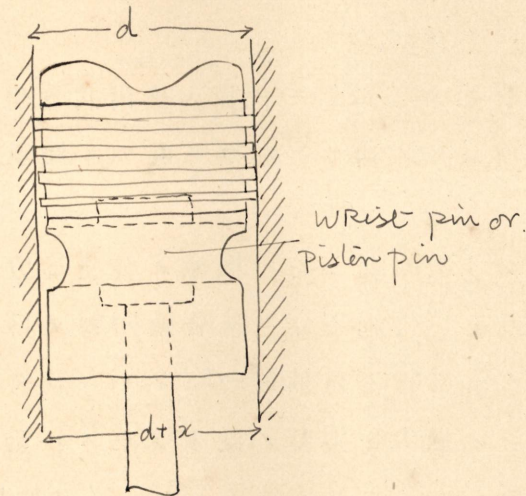 d
wrist pin or.
pisten pin
d+x